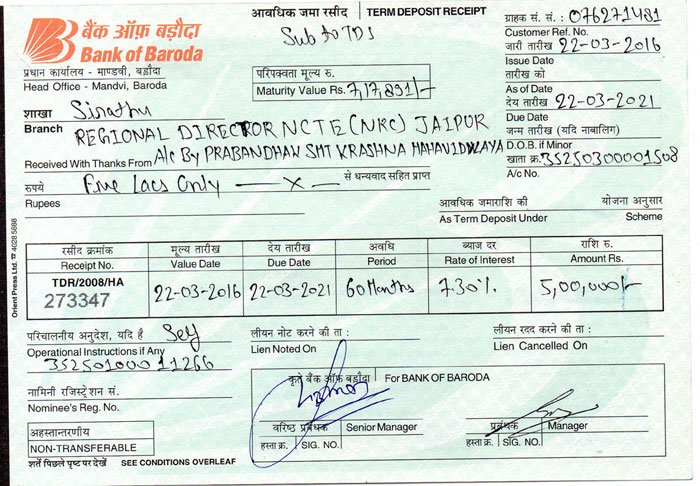 बैंक ऑफ़ बड़ौदा
Bank of Baroda
प्रधान कार्यालय - माण्डवी, बड़ौदा
Head Office - Mandvi, Baroda
आवधिक जमा रसीद TERM DEPOSIT RECEIPT
Sub to TDS
परिपक्वता मूल्य रु.
Maturity Value Rs. 7,17,831/-
ग्राहक सं. सं. : 076271481
Customer Ref. No.
जारी तारीख 22-03-2016
Issue Date
तारीख को
As of Date
देय तारीख 22-03-2021
Due Date
जन्म तारीख (यदि नाबालिग)
D.O.B. if Minor
खाता क्र. 35250300001508
A/c No.
शाखा Sirathu
Branch REGIONAL DIRECTOR NCTE (NRC) JAIPUR
Received With Thanks From A/c By PRABANDHAK SMT KRASHNA MAHAVIDYALAYA
रुपये Five Lacs Only — x — से धन्यवाद सहित प्राप्त
Rupees
आवधिक जमाराशि की योजना अनुसार
As Term Deposit Under Scheme
रसीद क्रमांक मूल्य तारीख देय तारीख अवधि ब्याज दर राशि रु.
Receipt No. Value Date Due Date Period Rate of Interest Amount Rs.
TDR/2008/HA
273347 22-03-2016 22-03-2021 60 Months 7.30% 5,00,000/-
Orient Press Ltd. ☎ 4028 5888
परिचालनीय अनुदेश, यदि है Self
Operational Instructions if Any
35250100011266
लीयन नोट करने की ता :
Lien Noted On
लीयन रदद करने की ता :
Lien Cancelled On
नामिनी रजिस्ट्रेशन सं.
Nominee's Reg. No.
कृते बैंक ऑफ़ बड़ौदा For BANK OF BARODA
वरिष्ठ प्रबंधक Senior Manager
हस्ता क्र. SIG. NO.
प्रबंधक Manager
हस्ता क्र. SIG. NO.
अहस्तान्तरणीय
NON-TRANSFERABLE
शर्तें पिछले पृष्ट पर देखें SEE CONDITIONS OVERLEAF